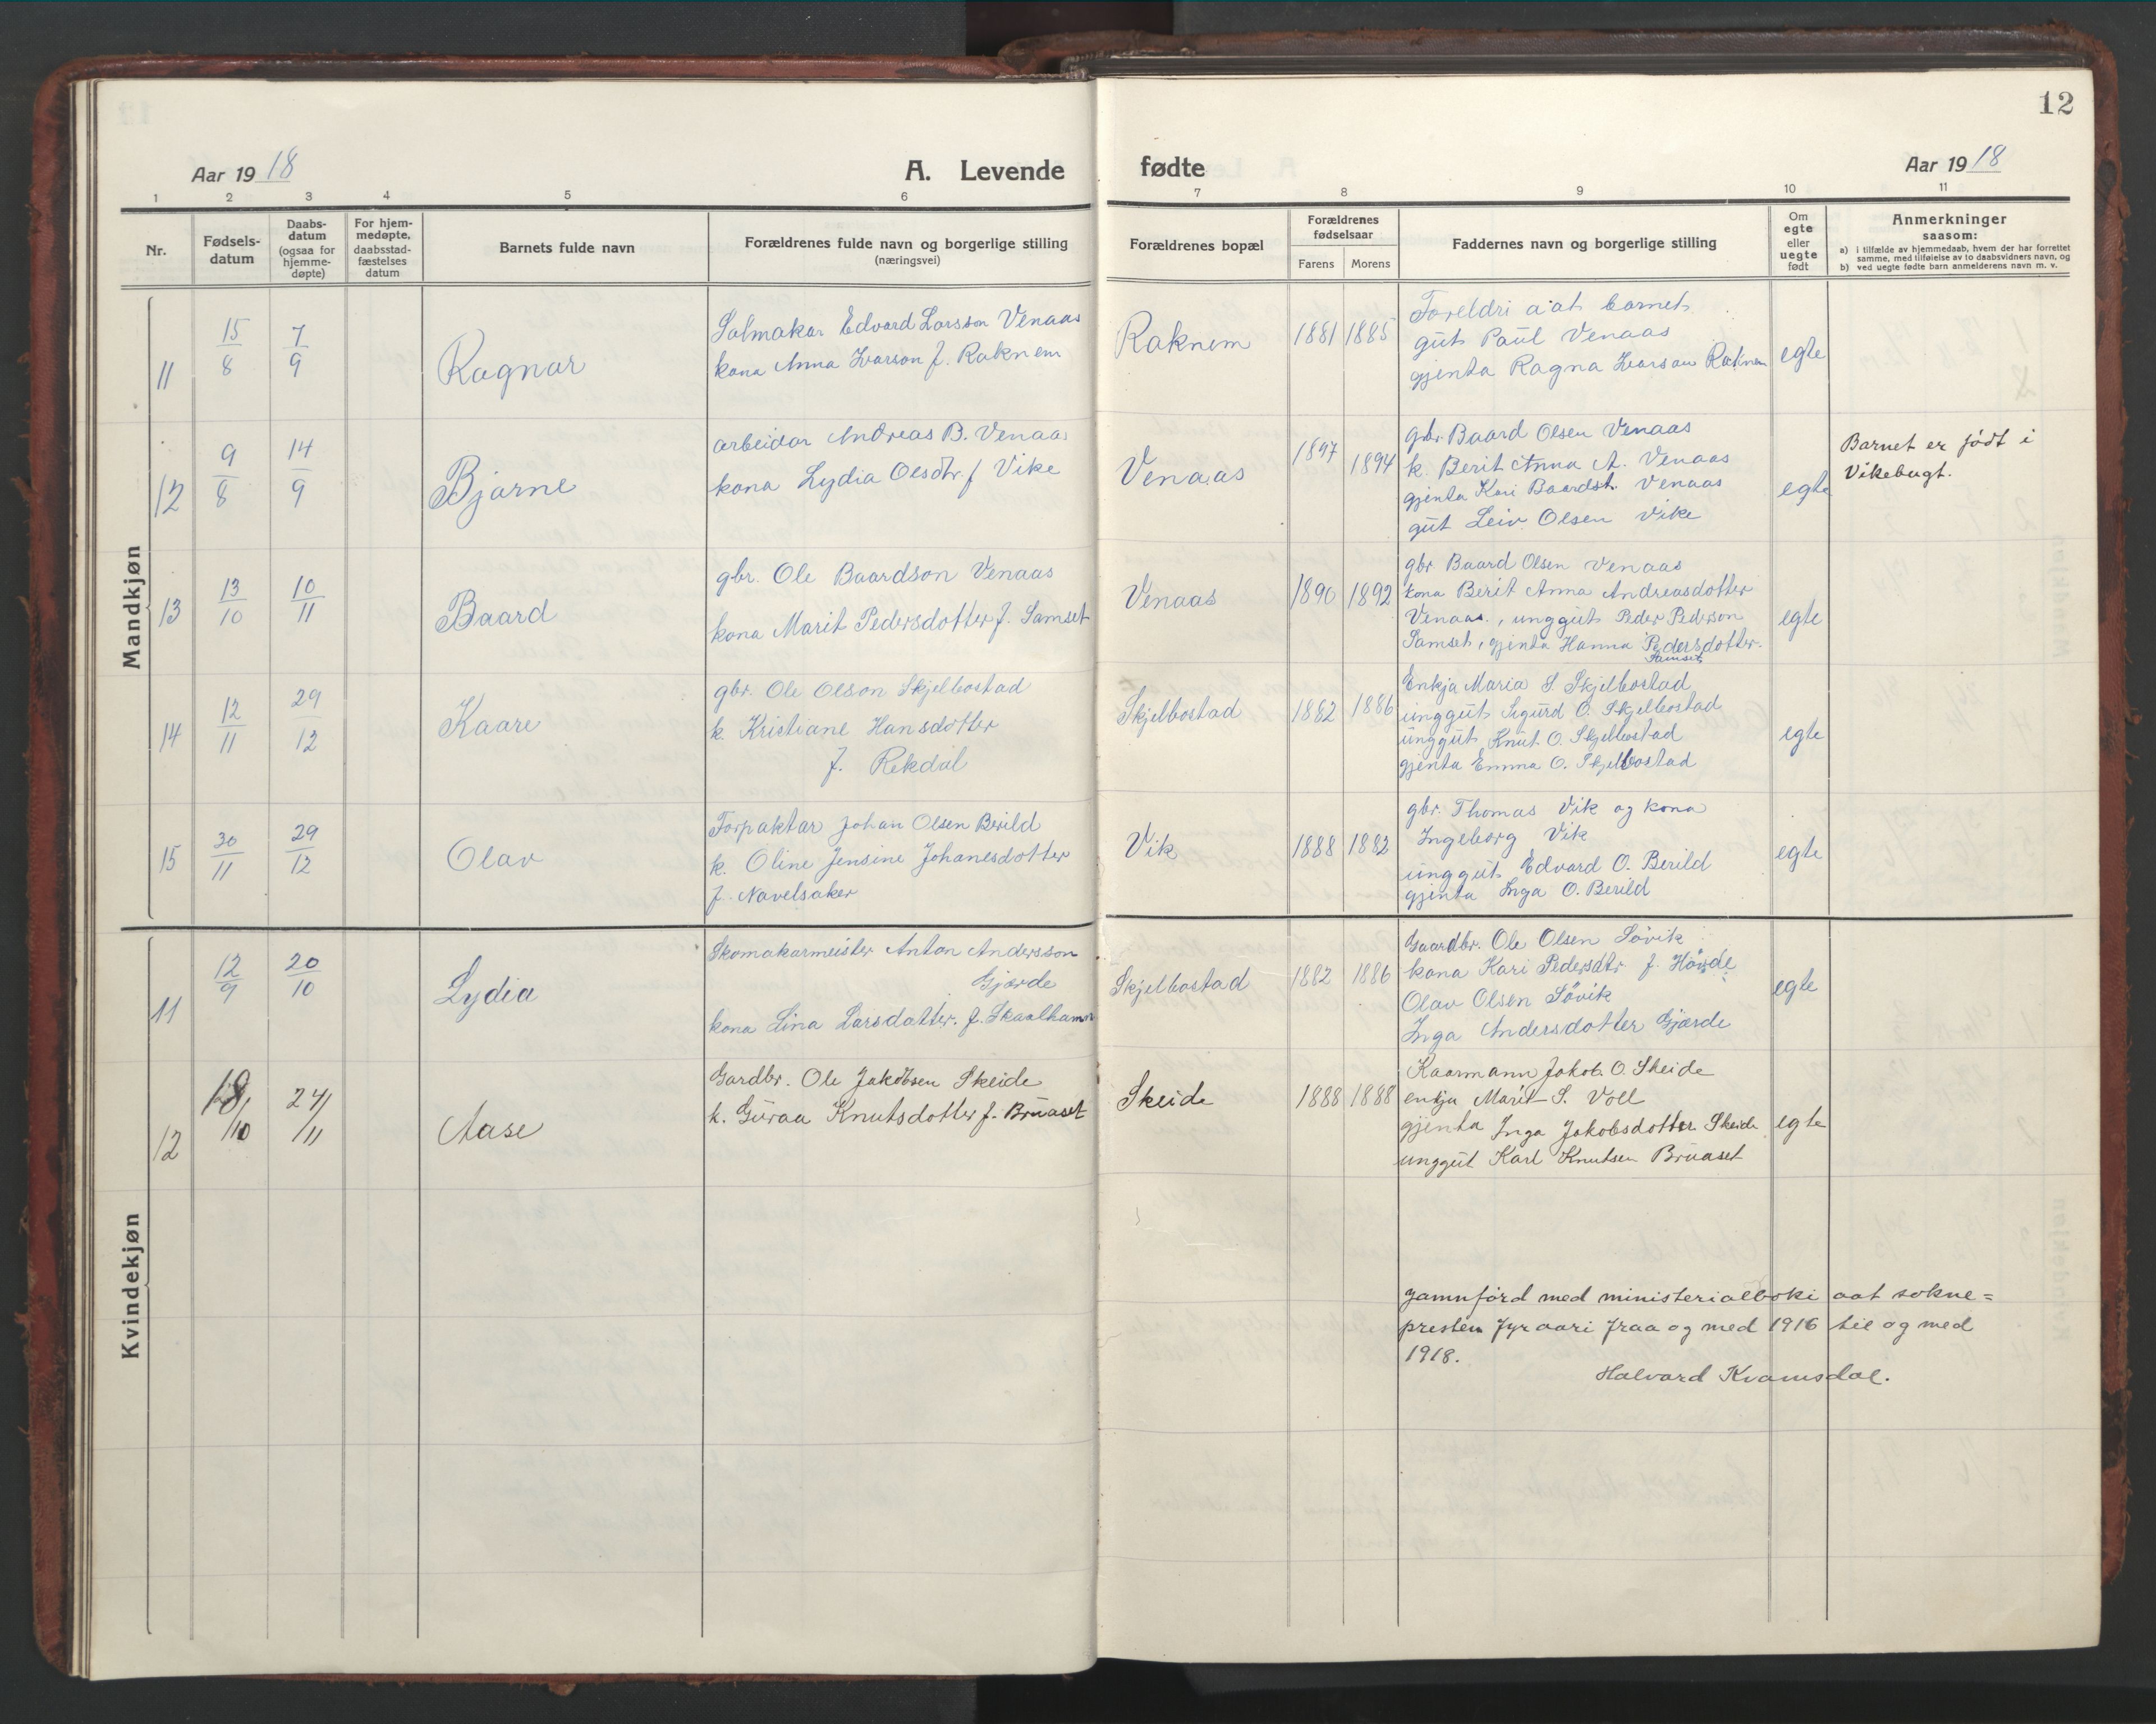 12
Aar 1918
A. Levende fødte
Aar 1918
1 2 3 4 5 6 7 8 9 10 11
Nr.
Fødsels-
datum
Daabs-
datum
(ogsaa for
hjemme-
døpte)
For hjem-
medøpte,
daabsstad-
fæstelses
datum
Barnets fulde navn
Forældrenes fulde navn og borgerlige stilling
(næringsvei)
Forældrenes bopæl
Forældrenes
fødselsaar
Farens Morens
Faddernes navn og borgerlige stilling
Om
egte
eller
uegte
født
Anmerkninger
saasom:
a) i tilfælde av hjemmedaab, hvem der har forrettet
samme, med tilføielse av to daabsvidners navn, og
b) ved uegte fødte barn anmelderens navn m. v.
Mandkjøn
11
15/8
7/9
Ragnar
Salmakar Edvard Larsson Venaas
kona Anna Ivarson f. Raknem
Raknem
1881 1885
Foreldri aat barnet
gut Paul Venaas
gjenta Ragna Ivarson Raknem
egte
12
9/8
14/9
Bjarne
arbeidar Andreas B. Venaas
kona Lydia Olsdtr. f Vike
Venaas
1897 1894
gbr. Baard Olsen Venaas
k. Berit Anna A. Venaas
gjenta Kari Baardst. Venaas
gut Leiv Olsen Vike
egte
Barnet er født i
Vikebugt.
13
13/10
10/11
Baard
gbr. Ole Baardson Venaas
kona Marit Pedersdotter f. Samset
Venaas
1890 1892
gbr Baard Olsen Venaas
kona Berit Anna Andreasdotter
Venaas, unggut Peder Pederson
Samset, gjenta Hanna Pedersdotter
Samset
egte
14
12/11
29/12
Kaare
gbr. Ole Olson Skjelbostad
k. Kristiane Hansdotter
f. Rekdal
Skjelbostad
1882 1886
Enkja Maria S. Skjelbostad
unggut Sigurd O. Skjelbostad
unggut Knut O. Skjelbostad
gjenta Emma O. Skjelbostad
egte
15
30/11
29/12
Olav
Forpaktar Johan Olsen Berild
k. Oline Jensine Johanesdotter
f. Navelsaker
Vik
1888 1882
gbr. Thomas Vik og kona
Ingeborg Vik
unggut Edvard O. Berild
gjenta Inga O. Berild
egte
Kvindekjøn
11
12/9
20/10
Lydia
Skomakarmeister Anton Andersson
Gjærde
kona Lina Larsdatter. f. Skaalhamn
Skjelbostad
1882 1886
Gaardbr. Ole Olsen Søvik
kona Kari Pedersdtr f. Hørde
Olav Olsen Søvik
Inga Andersdotter Gjærde
egte
12
18/10
24/11
Aase
Gardbr. Ole Jakobsen Skeide
k. Guraa Knutsdotter f. Bruaset
Skeide
1888 1888
Kaarmann Jakob O. Skeide
enkja Marit S. Voll
gjenta Inga Jakobsdotter Skeide
unggut Karl Knutsen Bruaset
egte
Jamnførd med ministerialboki aat sokne=
presten fyr aari fraa og med 1916 til og med
1918.
Halvard Kvamsdal.